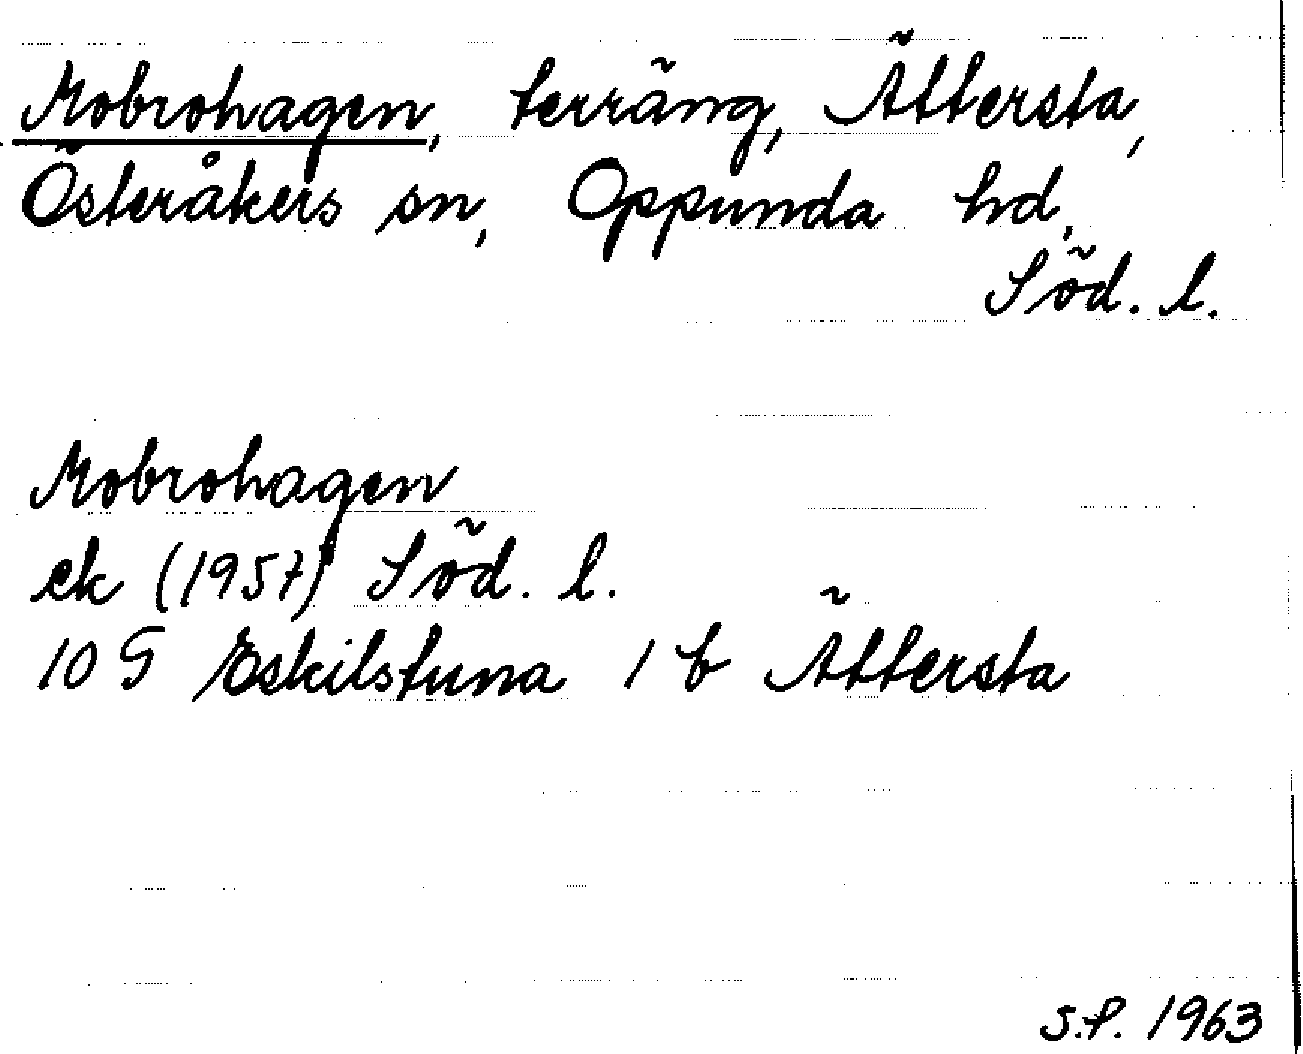 Mobrohagen, terräng, Ättersta,
Österåkers sn, Oppunda hd,
Söd. l.
Mobrohagen
ek (1957) Söd. l.
10 G Eskilstuna 1 b Ättersta
S.P. 1963